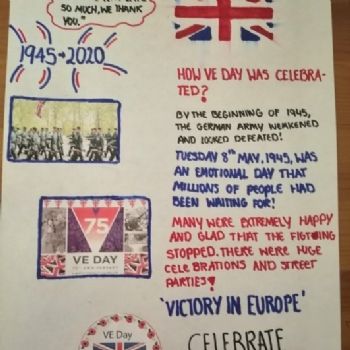 SO MUCH, WE THANK
YOU."
1945→2020
HOW VE DAY WAS CELEBRA-
TED?
BY THE BEGINNING OF 1945,
THE GERMAN ARMY WEAKENED
AND LOOKED DEFEATED!
TUESDAY 8TH MAY, 1945, WAS
AN EMOTIONAL DAY THAT
MILLIONS OF PEOPLE HAD
BEEN WAITING FOR!
MANY WERE EXTREMELY HAPPY
AND GLAD THAT THE FIGTING
STOPPED. THERE WERE HUGE
CELEBRATIONS AND STREET
PARTIES!
75
VE DAY
'VICTORY IN EUROPE'
VE Day
CELEBRATE